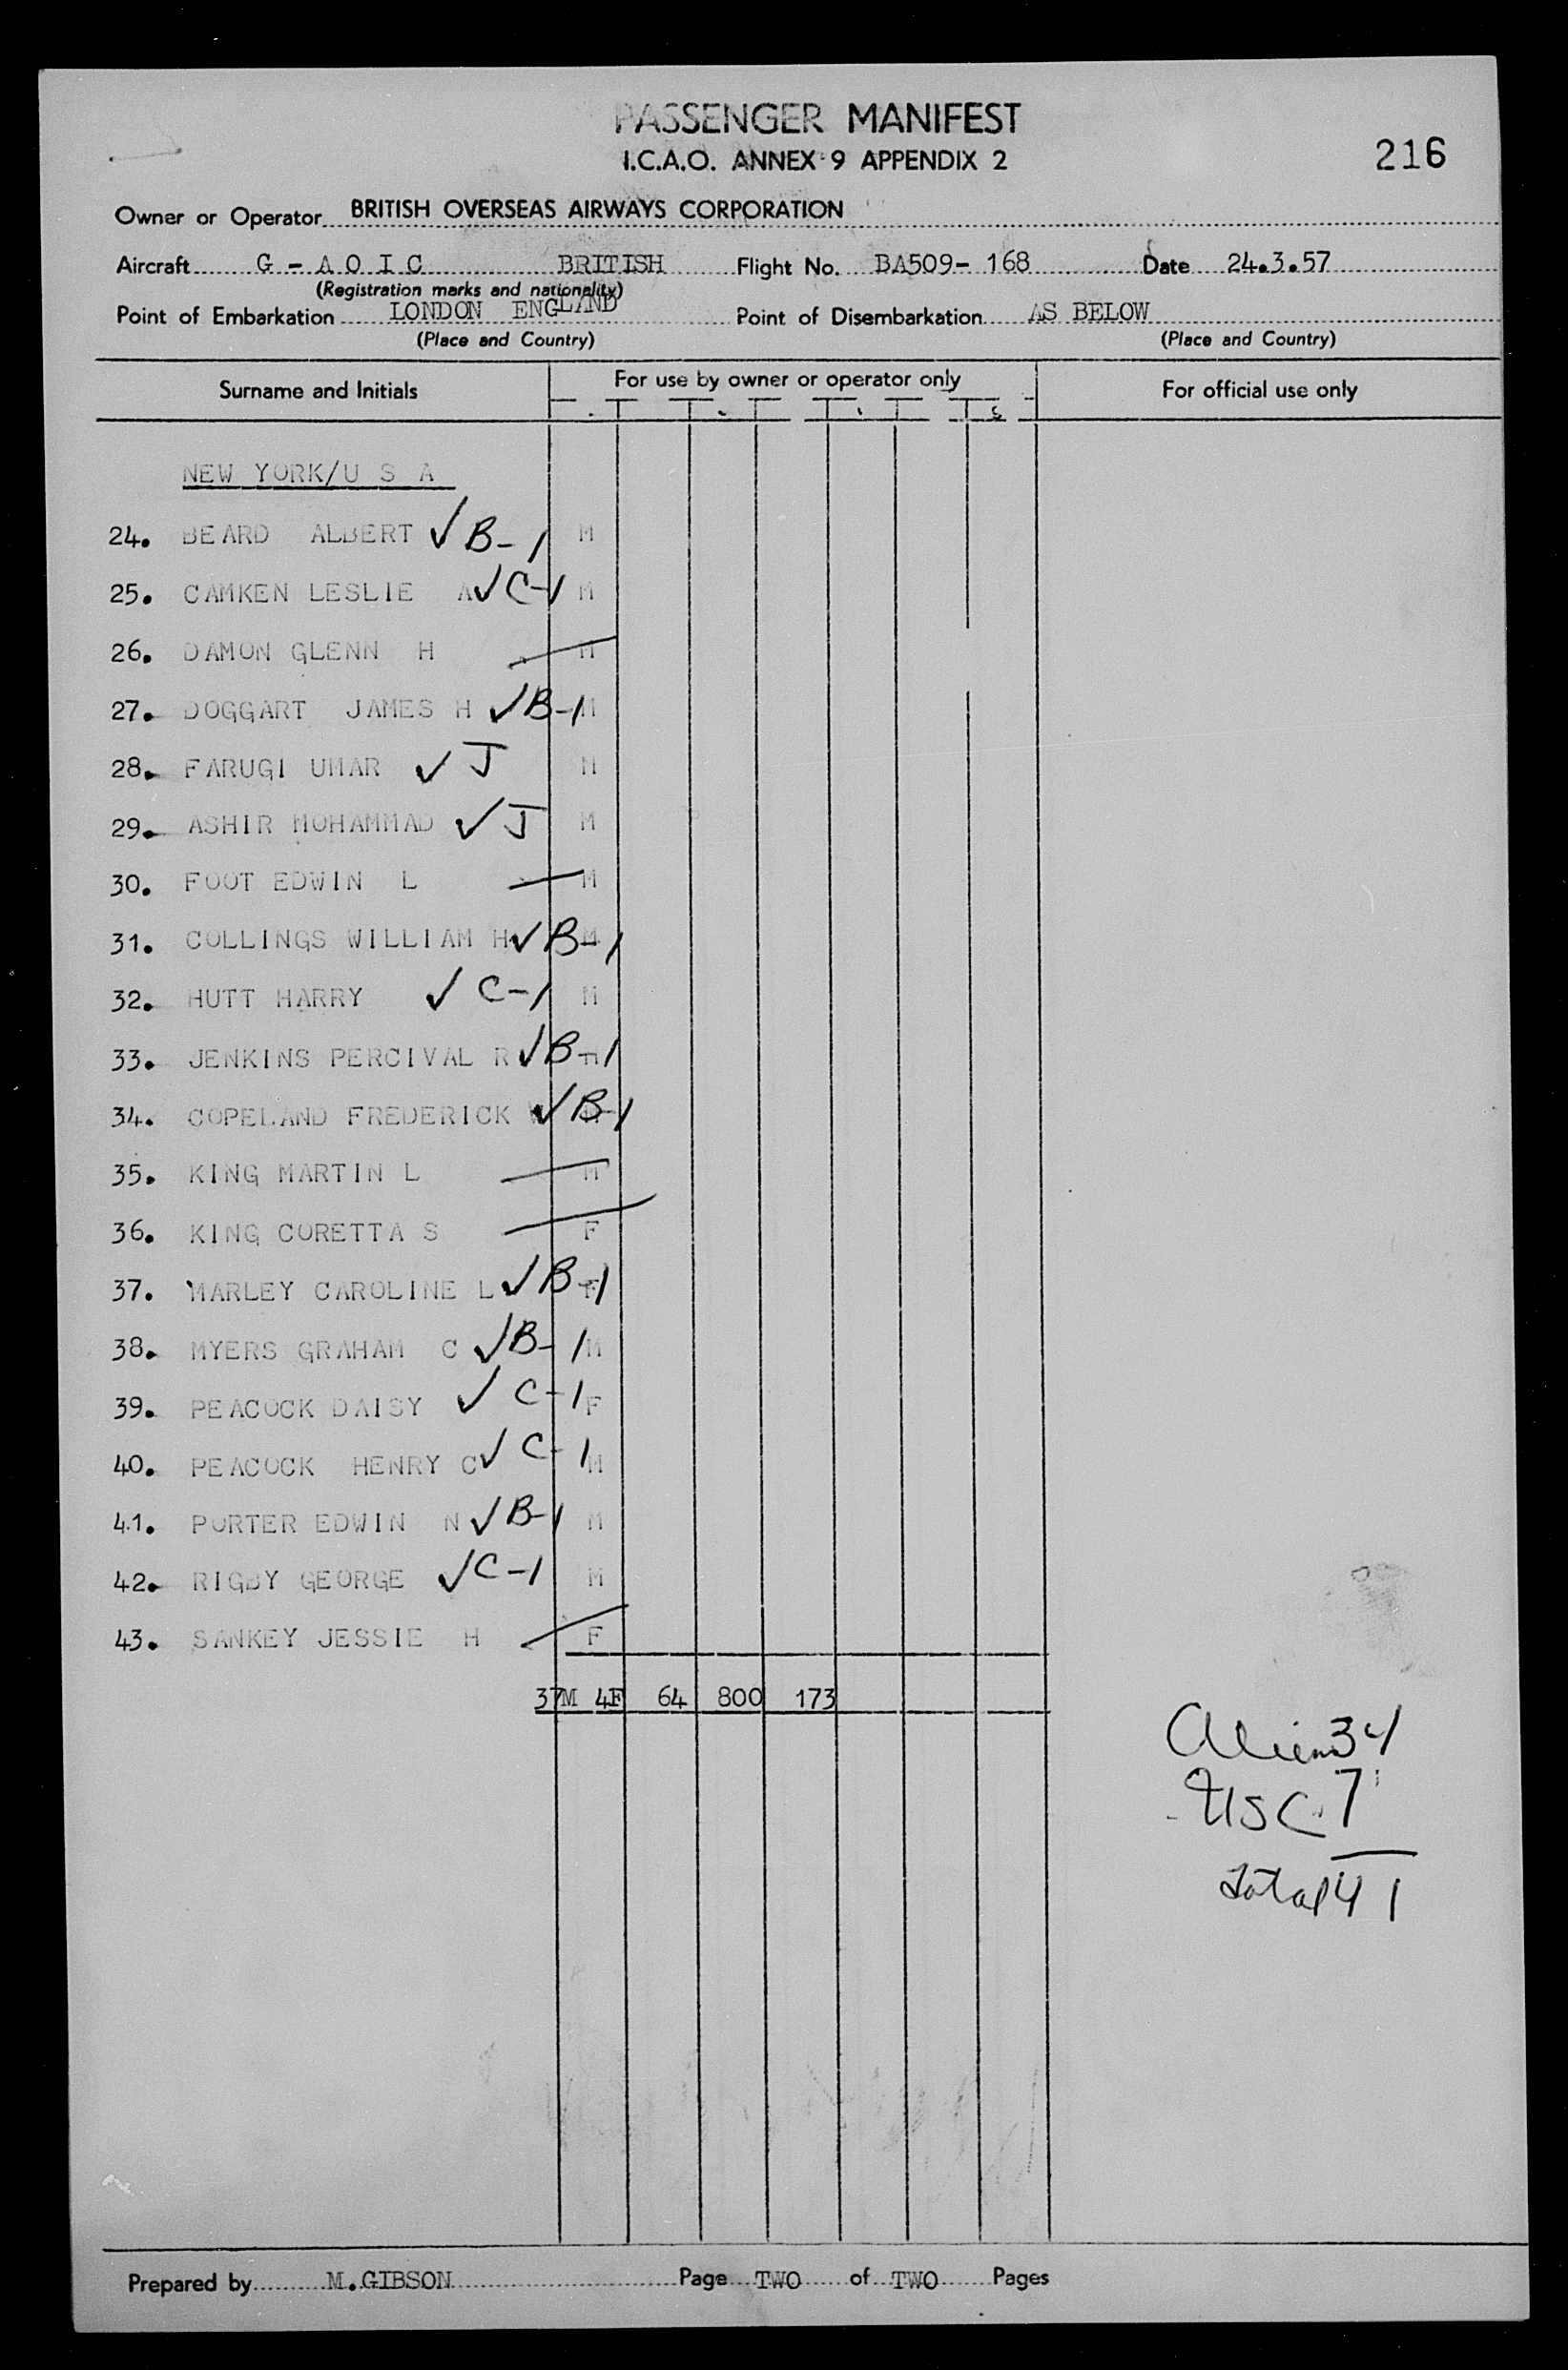 PASSENGER MANIFEST
I.C.A.O. ANNEX 9 APPENDIX 2
216
Owner or Operator BRITISH OVERSEAS AIRWAYS CORPORATION
Aircraft G - A O I C BRITISH Flight No. BA509- 168 Date 24.3.57
(Registration marks and nationality)
Point of Embarkation LONDON ENGLAND Point of Disembarkation AS BELOW
(Place and Country) (Place and Country)
Surname and Initials For use by owner or operator only For official use only
NEW YORK/U S A
24. BEARD ALBERT ✓ B-1 M
25. CAMKEN LESLIE A ✓ C-1 M
26. DAMON GLENN H M
27. DOGGART JAMES H ✓ B-1 M
28. FARUGI UMAR ✓ J M
29. ASHIR MOHAMMAD ✓ J M
30. FOOT EDWIN L M
31. COLLINGS WILLIAM H ✓ B-1 M
32. HUTT HARRY ✓ C-1 M
33. JENKINS PERCIVAL R ✓ B-1 M
34. COPELAND FREDERICK ✓ B-1
35. KING MARTIN L M
36. KING CORETTA S F
37. MARLEY CAROLINE L ✓ B-1 F
38. MYERS GRAHAM C ✓ B-1 M
39. PEACOCK DAISY ✓ C-1 F
40. PEACOCK HENRY C ✓ C-1 M
41. PORTER EDWIN N ✓ B-1 M
42. RIGBY GEORGE ✓ C-1 M
43. SANKEY JESSIE H F
37M 4F 64 800 173
Aliens 34
USC 7
Total 41
Prepared by M.GIBSON Page TWO of TWO Pages